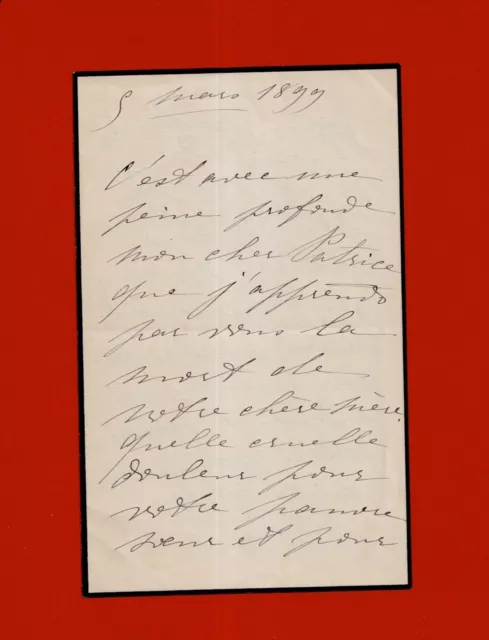 5 mars 1899
C'est avec une
peine profonde
mon cher Patrice
que j'apprends
par vous la
mort de
votre chère mère.
quelle cruelle
douleur pour
votre pauvre
sœur et pour